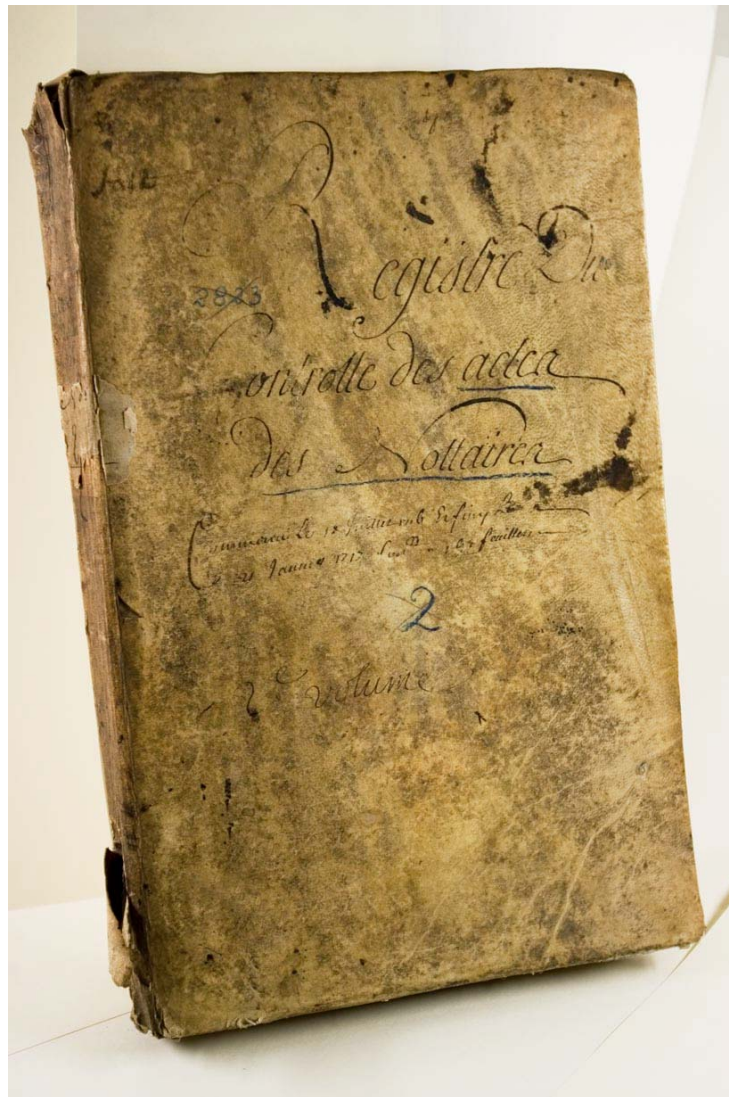 2823
Registre Du
Controlle des actes
des Nottaires
Commencé Le 18 Juillet
21 Janvier 1717 feuillets
2
2e volume